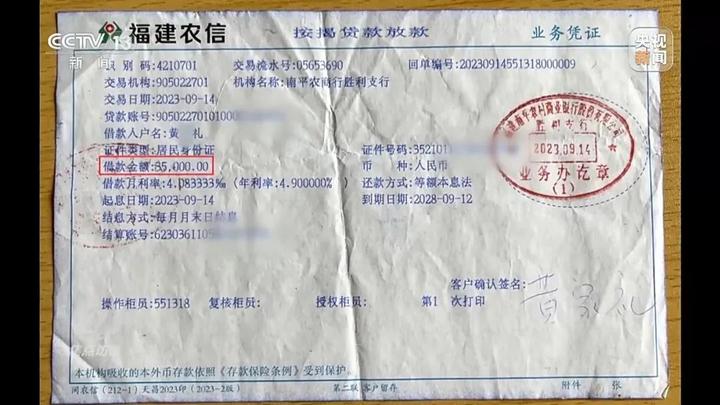 CCTV 13 福建农信 按揭贷款放款 业务凭证 央视新闻
新闻
识别码:4210701 交易流水号:05653690 回单编号:20230914551318000009
交易机构:905022701 机构名称:南平农商行胜利支行
交易日期:2023-09-14
贷款账号:9050227010100
借款人户名:黄 礼
证件类型:居民身份证 证件号码:352101
借款金额:35,000.00 币 种:人民币
借款月利率:4.083333‰ (年利率:4.900000%) 还款方式:等额本息法
起息日期:2023-09-14 到期日期:2028-09-12
结息方式:每月月末日结息
结算账号:6230361105
2023.09.14
业务办讫章
(1)
客户确认签名:
黄家礼
操作柜员:551318 复核柜员: 授权柜员: 第1 次打印
本机构吸收的本外币存款依照《存款保险条例》受到保护。
闽农信(212-1)天昌2023印(2023-2版) 第二联 客户留存 附件 张